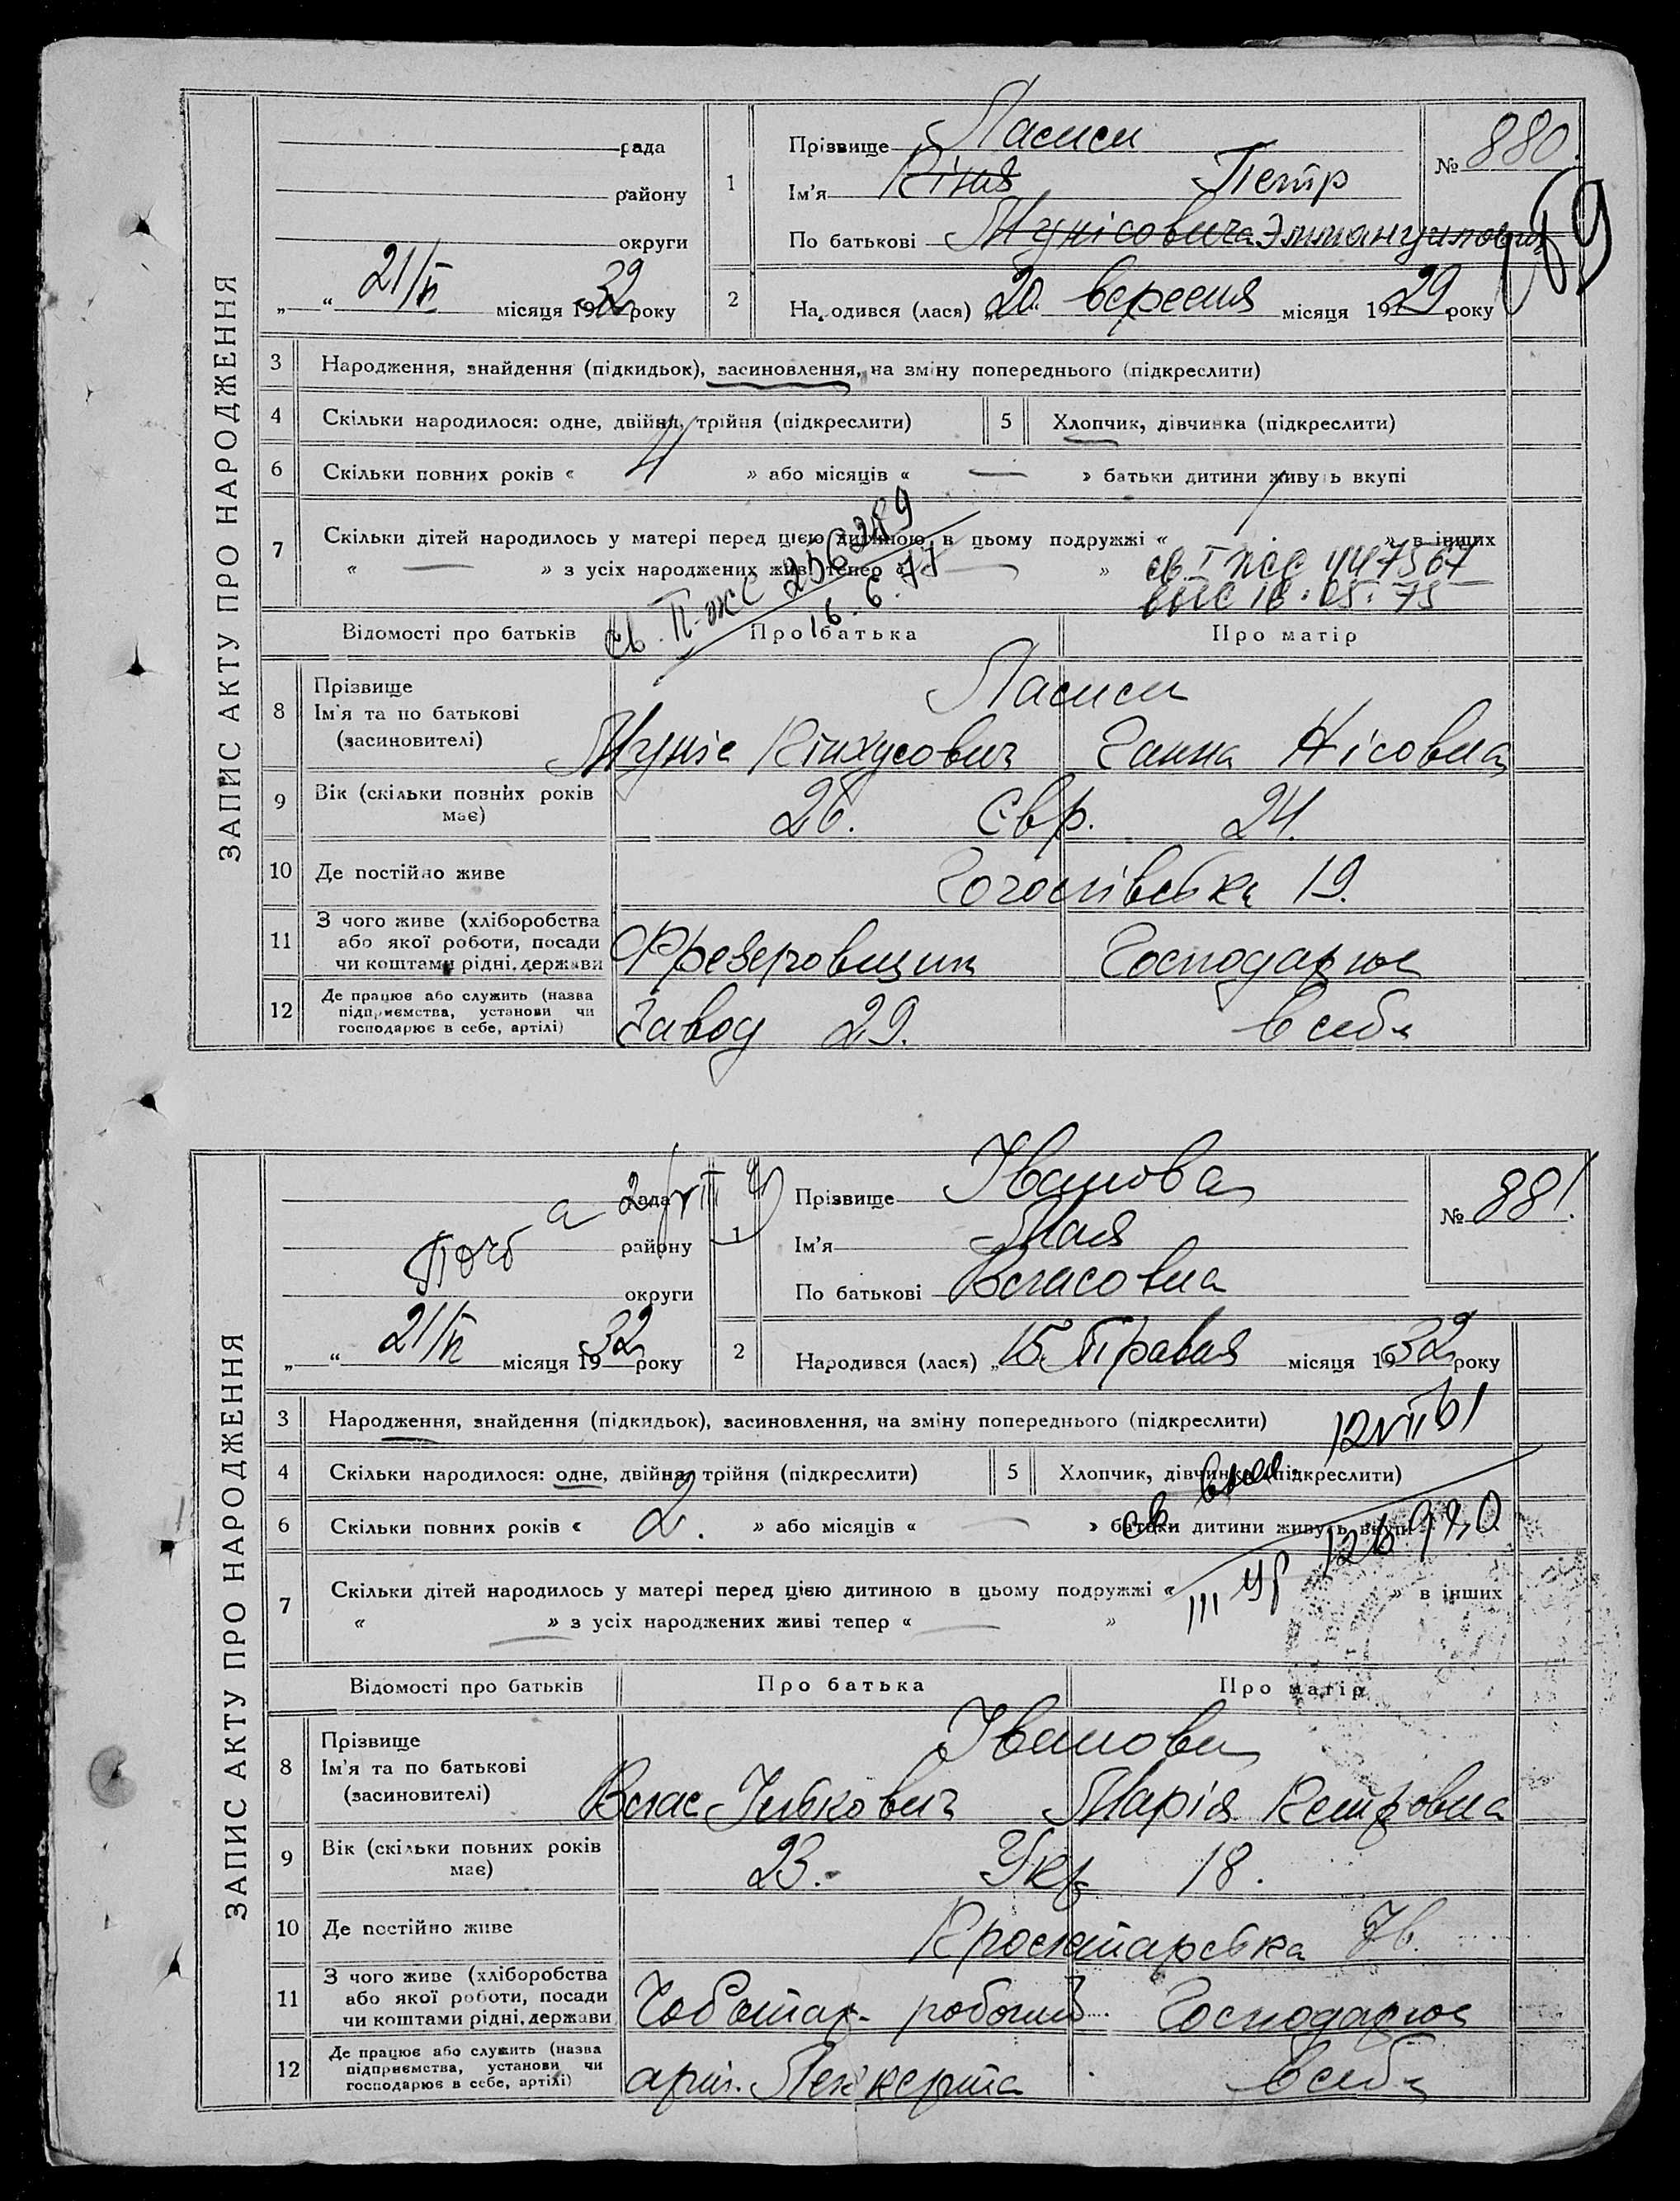 ЗАПИС АКТУ ПРО НАРОДЖЕННЯ
рада
району
округи
„ “ 21/VI місяця 1932 року
1
Прізвище
Ім'я Петр
По батькові Мунісовича Эммануилович
№ 880.
2
Народився (лася) „20“ вересня місяця 1929 року
3 Народження, знайдення (підкидьок), засиновлення, на зміну попереднього (підкреслити)
4 Скільки народилося: одне, двійня, трійня (підкреслити)
5 Хлопчик, дівчинка (підкреслити)
6 Скільки повних років « 4 » або місяців « — » батьки дитини живуть вкупі
7 Скільки дітей народилось у матері перед цією дитиною в цьому подружжі « » в інших
« — » з усіх народжених живі тепер « — »
св. II-жс 256289
16.6.77
св. I 447567
75
Відомості про батьків Про батька Про матір
8 Прізвище
Ім'я та по батькові
(засиновителі)
Муніс Ганна
9 Вік (скільки повних років має) 26. Євр. 24.
10 Де постійно живе 19.
11 З чого живе (хліборобства або якої роботи, посади чи коштами рідні, держави Фрезеровщик Господарює
12 Де працює або служить (назва підприємства, установи чи господарює в себе, артілі) Завод 29. в себе
ЗАПИС АКТУ ПРО НАРОДЖЕННЯ
рада
району
округи
„ “ 21/VI місяця 1932 року
1
Прізвище Іванова
Ім'я Мая
По батькові Власовна
№ 881.
2
Народився (лася) „15. Травня місяця 1932 року
3 Народження, знайдення (підкидьок), засиновлення, на зміну попереднього (підкреслити)
4 Скільки народилося: одне, двійня, трійня (підкреслити)
5 Хлопчик, дівчинка (підкреслити)
6 Скільки повних років « 2. » або місяців « — » батьки дитини живуть вкупі
7 Скільки дітей народилось у матері перед цією дитиною в цьому подружжі « » в інших
« — » з усіх народжених живі тепер « — »
Відомості про батьків Про батька Про матір
8 Прізвище
Ім'я та по батькові
(засиновителі)
Іванови
Влас Марія Петровна
9 Вік (скільки повних років має) 23.- Укр. 18.
10 Де постійно живе Пролетарська
11 З чого живе (хліборобства або якої роботи, посади чи коштами рідні, держави Чоботар- робочий Господарює
12 Де працює або служить (назва підприємства, установи чи господарює в себе, артілі) арт. в себе